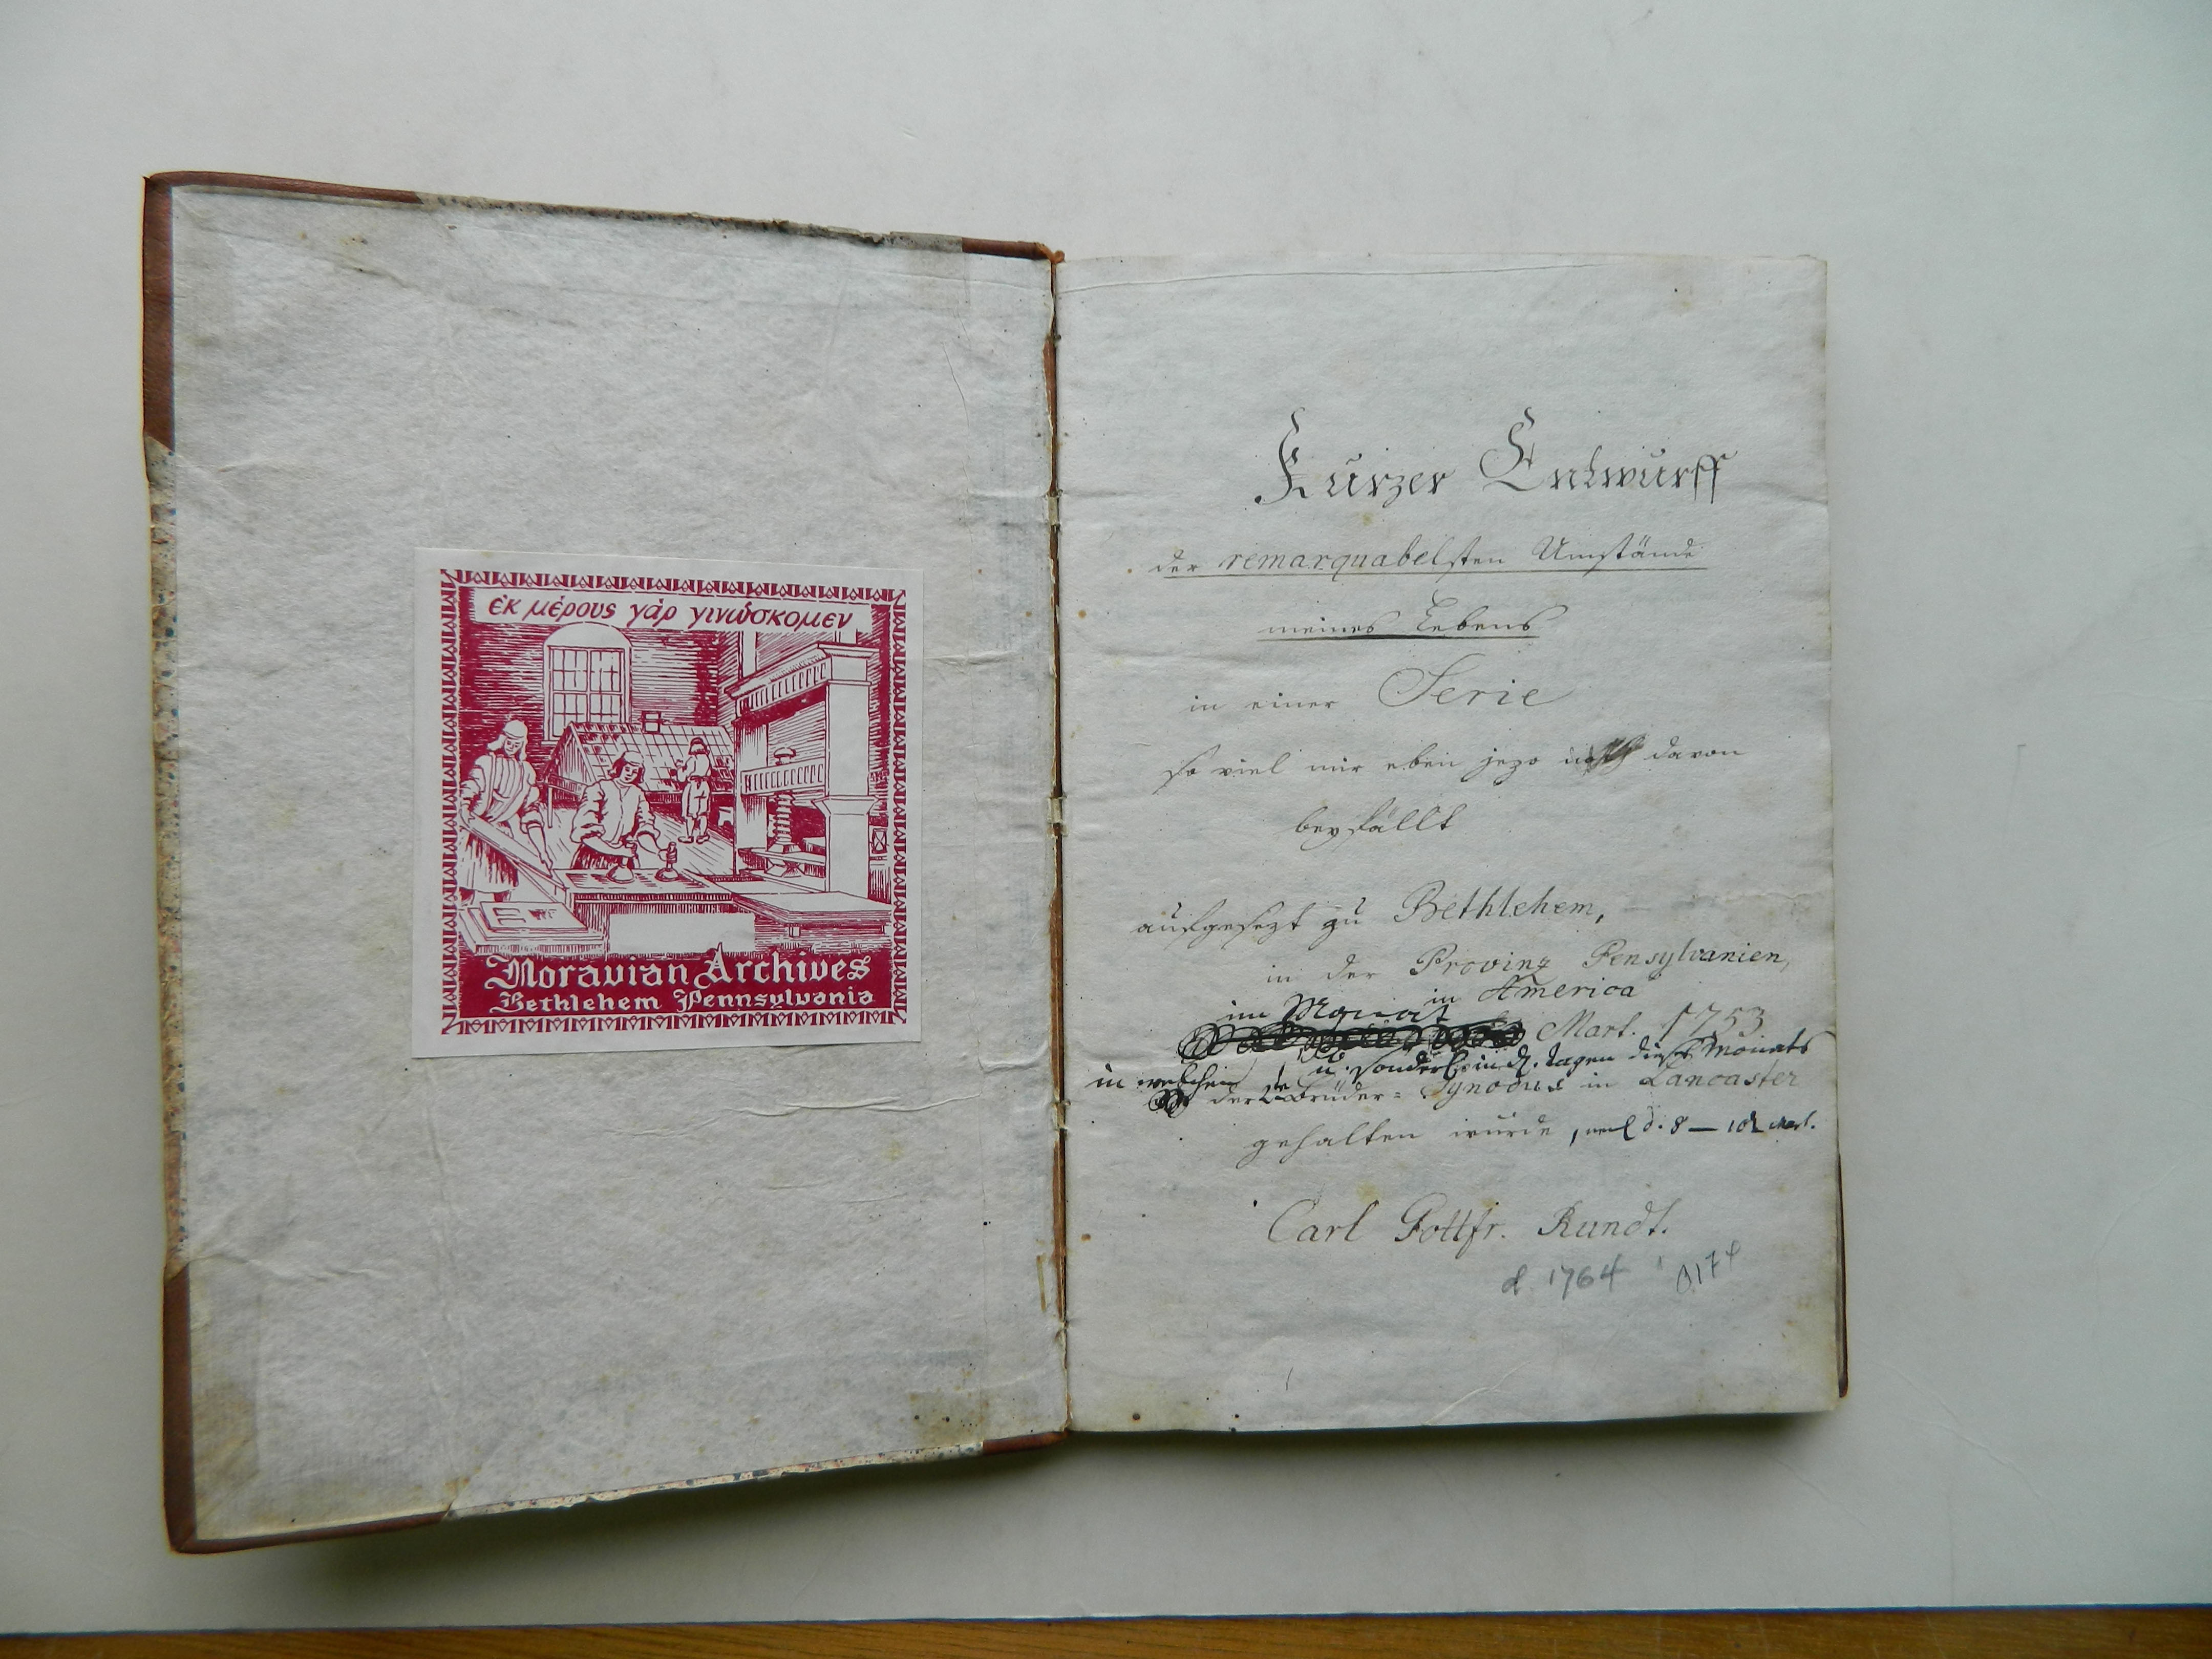 ἐκ μέρους γάρ γινώσκομεν
Moravian Archives
Bethlehem Pennsylvania
Kurzer Entwurff
der remarquabelsten Umstände
meines Lebens
in einer Serie
so viel mir eben jezo davon
beyfällt
aufgesezt zu Bethlehem,
in der Provinz Pensylvanien,
in America
im Monat
Mart. 1753
u. sonderl. in d. Tagen dieses Monats
in welchen der Brüder-Synodus in Lancaster
gehalten wurde, d. 8 — 10t Mart.
Carl Gottfr. Rundt.
d. 1764